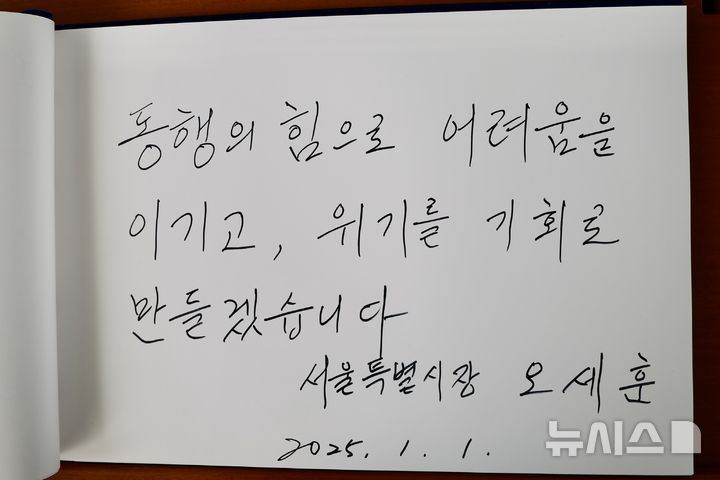 동행의 힘으로 어려움을
이기고, 위기를 기회로
만들겠습니다
서울특별시장 오세훈
2025. 1. 1.
뉴시스